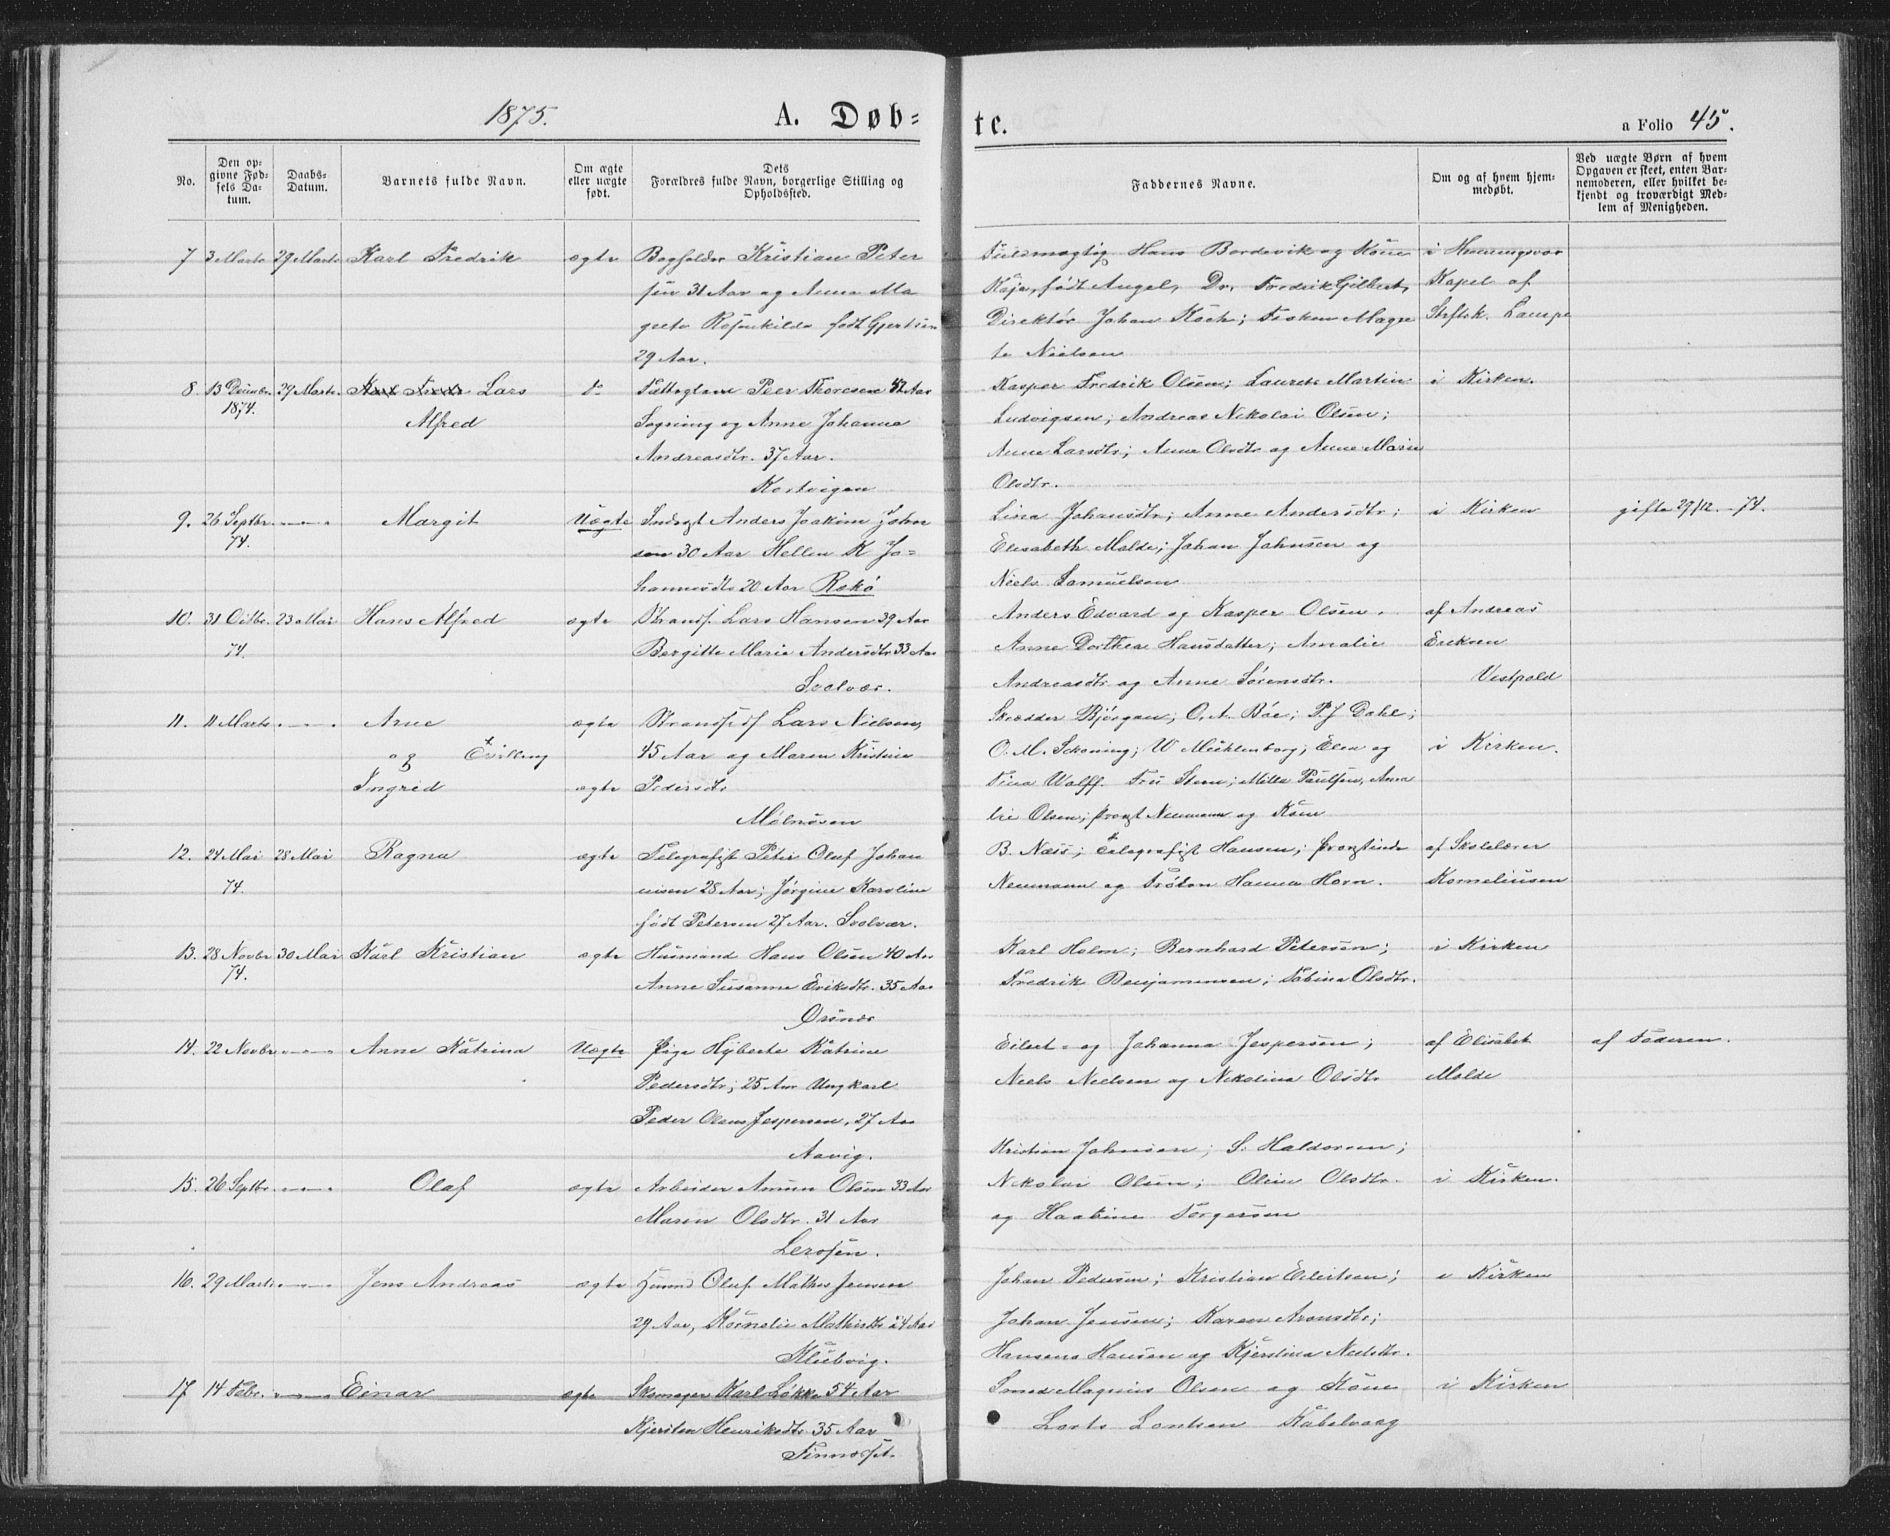 1875.
A. Døb=
te.
a Folio 45.
No.
Den op=
givne Fød=
sels Da=
tum.
Daabs=
Datum.
Barnets fulde Navn.
Om ægte
eller uægte
født.
Dets
Forældres fulde Navn, borgerlige Stilling og
Opholdssted.
Faddernes Navne.
Om og af hvem hjem=
medøbt.
Ved uægte Børn af hvem
Opgaven er skeet, enten Bar=
nemoderen, eller hvilket be=
kjendt og troværdigt Med=
lem af Menigheden.
7 3 Marts 29 Marts Karl Fredrik ægte Bogholder Kristian Peter
sen 31 Aar og Anna Ma
grete født Gjertsen
29 Aar.
Fuldmægtig Hans Bordevik og Kone i Henningsvær
Kaja, født Angel, Dr. Fredrik Gilbert, Kapel af
Direktør Johan Koch; Frøken Magne Stiftsk. Lampe
te Nielsen
8. 13 Decembr. 29 Marts. Lars do Peer Thoresen 42 Aar
1874. Alfred og Anne Johanna
Andreasdtr. 37 Aar.
Kasper Fredrik Olsen; Laurits Martin i Kirken.
Ludvigsen; Andreas Nikolai Olsen;
Anne Larsdtr; Anne Olsdtr og Anne Marie
Olsdtr.
9. 26 Septbr. Margit Uægte Anders Joakim John
74. sen 30 Aar Hellen K Jo=
hannesdtr 20 Aar Rækø
Lina Johansdtr; Anne Andersdtr; i Kirken gifte 29/12 - 74.
Elisabeth Molde; Johan Johnsen og
Niels Samuelsen
10. 31 Octbr. 23 Mai Hans Alfred ægte Strands. Lars Hansen 39 Aar
74. Bergitte Marie Andersdtr 33 Aar
Svolvær.
Anders Edvard og Kasper Olsen. af Andreas
Anne Dorthea Hansdatter; Amalie Eriksen
Andreasdtr og Anne Sørensdtr. Vestpold
11. 11 Marts. Arne ægte Lars Nielsen,
og Tvilling 45 Aar og Maren Kristina
Ingrid ægte Pedersdtr
Mølnosen
Skrædder Bjørgan; O. A. Bøe; P. J Dahl;
O. M. Schøning; W Mecklenborg; Elen og i Kirken.
Tina Wolff. Fru Steen; Milla Paulsen, Ama
lie Olsen; Provst Neumann og Kone
12. 24 Mai 28 Mai Ragna ægte Telegrafist Peter Oluf Johan
74. nisen 28 Aar; Jørgine Karoline
født Petersen 27 Aar. Svolvær.
B. Næss; Telegrafist Hansen; Provstinde af Skolelærer
Neumann og Frøken Hanna Horn. Korneliusen
13. 28 Novbr 30 Mai Karl Kristian ægte Husmand Hans Olsen 40 Aar
74. Anne Susanna Eriksdtr. 35 Aar
Ørsnæs
Karl Holm; Bernhard Petersen; i Kirken
Fredrik Benjaminsen; Sabina Olsdtr.
14. 22 Novbr Anne Katrina Uægte Pige Hyberte Katrine
Pedersdtr; 25 Aar Ungkarl
Peder Olaus Jespersen, 27 Aar
Aavig.
Eilert og Johanna Jespersen; af Elisabet af Faderen.
Niels Nielsen og Nikolina Olsdtr Molde
15. 26 Septbr. Olaf ægte Arbeider Amun Olsen 33 Aar
Maren Olsdtr. 31 Aar
Lerosen.
Kristian Johnsen; S. Haldorsen;
Nikolai Olsen; Oline Olsdtr. i Kirken.
og Haakine Torgersen
16. 29 Marts Jens Andreas ægte Oluf Mathis Jensen
29 Aar, Kornelie Mathisdtr 24 Aar
Klubvig.
Johan Pedersen; Kristian Eilertsen; i Kirken
Johan Jensen; Karen Aronsdtr;
Hansena Hansen og Kjerstina Nielsdtr.
17 14 Febr. Einar ægte Skomager Karl Løkke 54 Aar
Kjersten Henriksdtr 35 Aar
Finnesset.
Smed Magnus Olsen og Kone i Kirken
Lorts Lontsen Kabelvaag